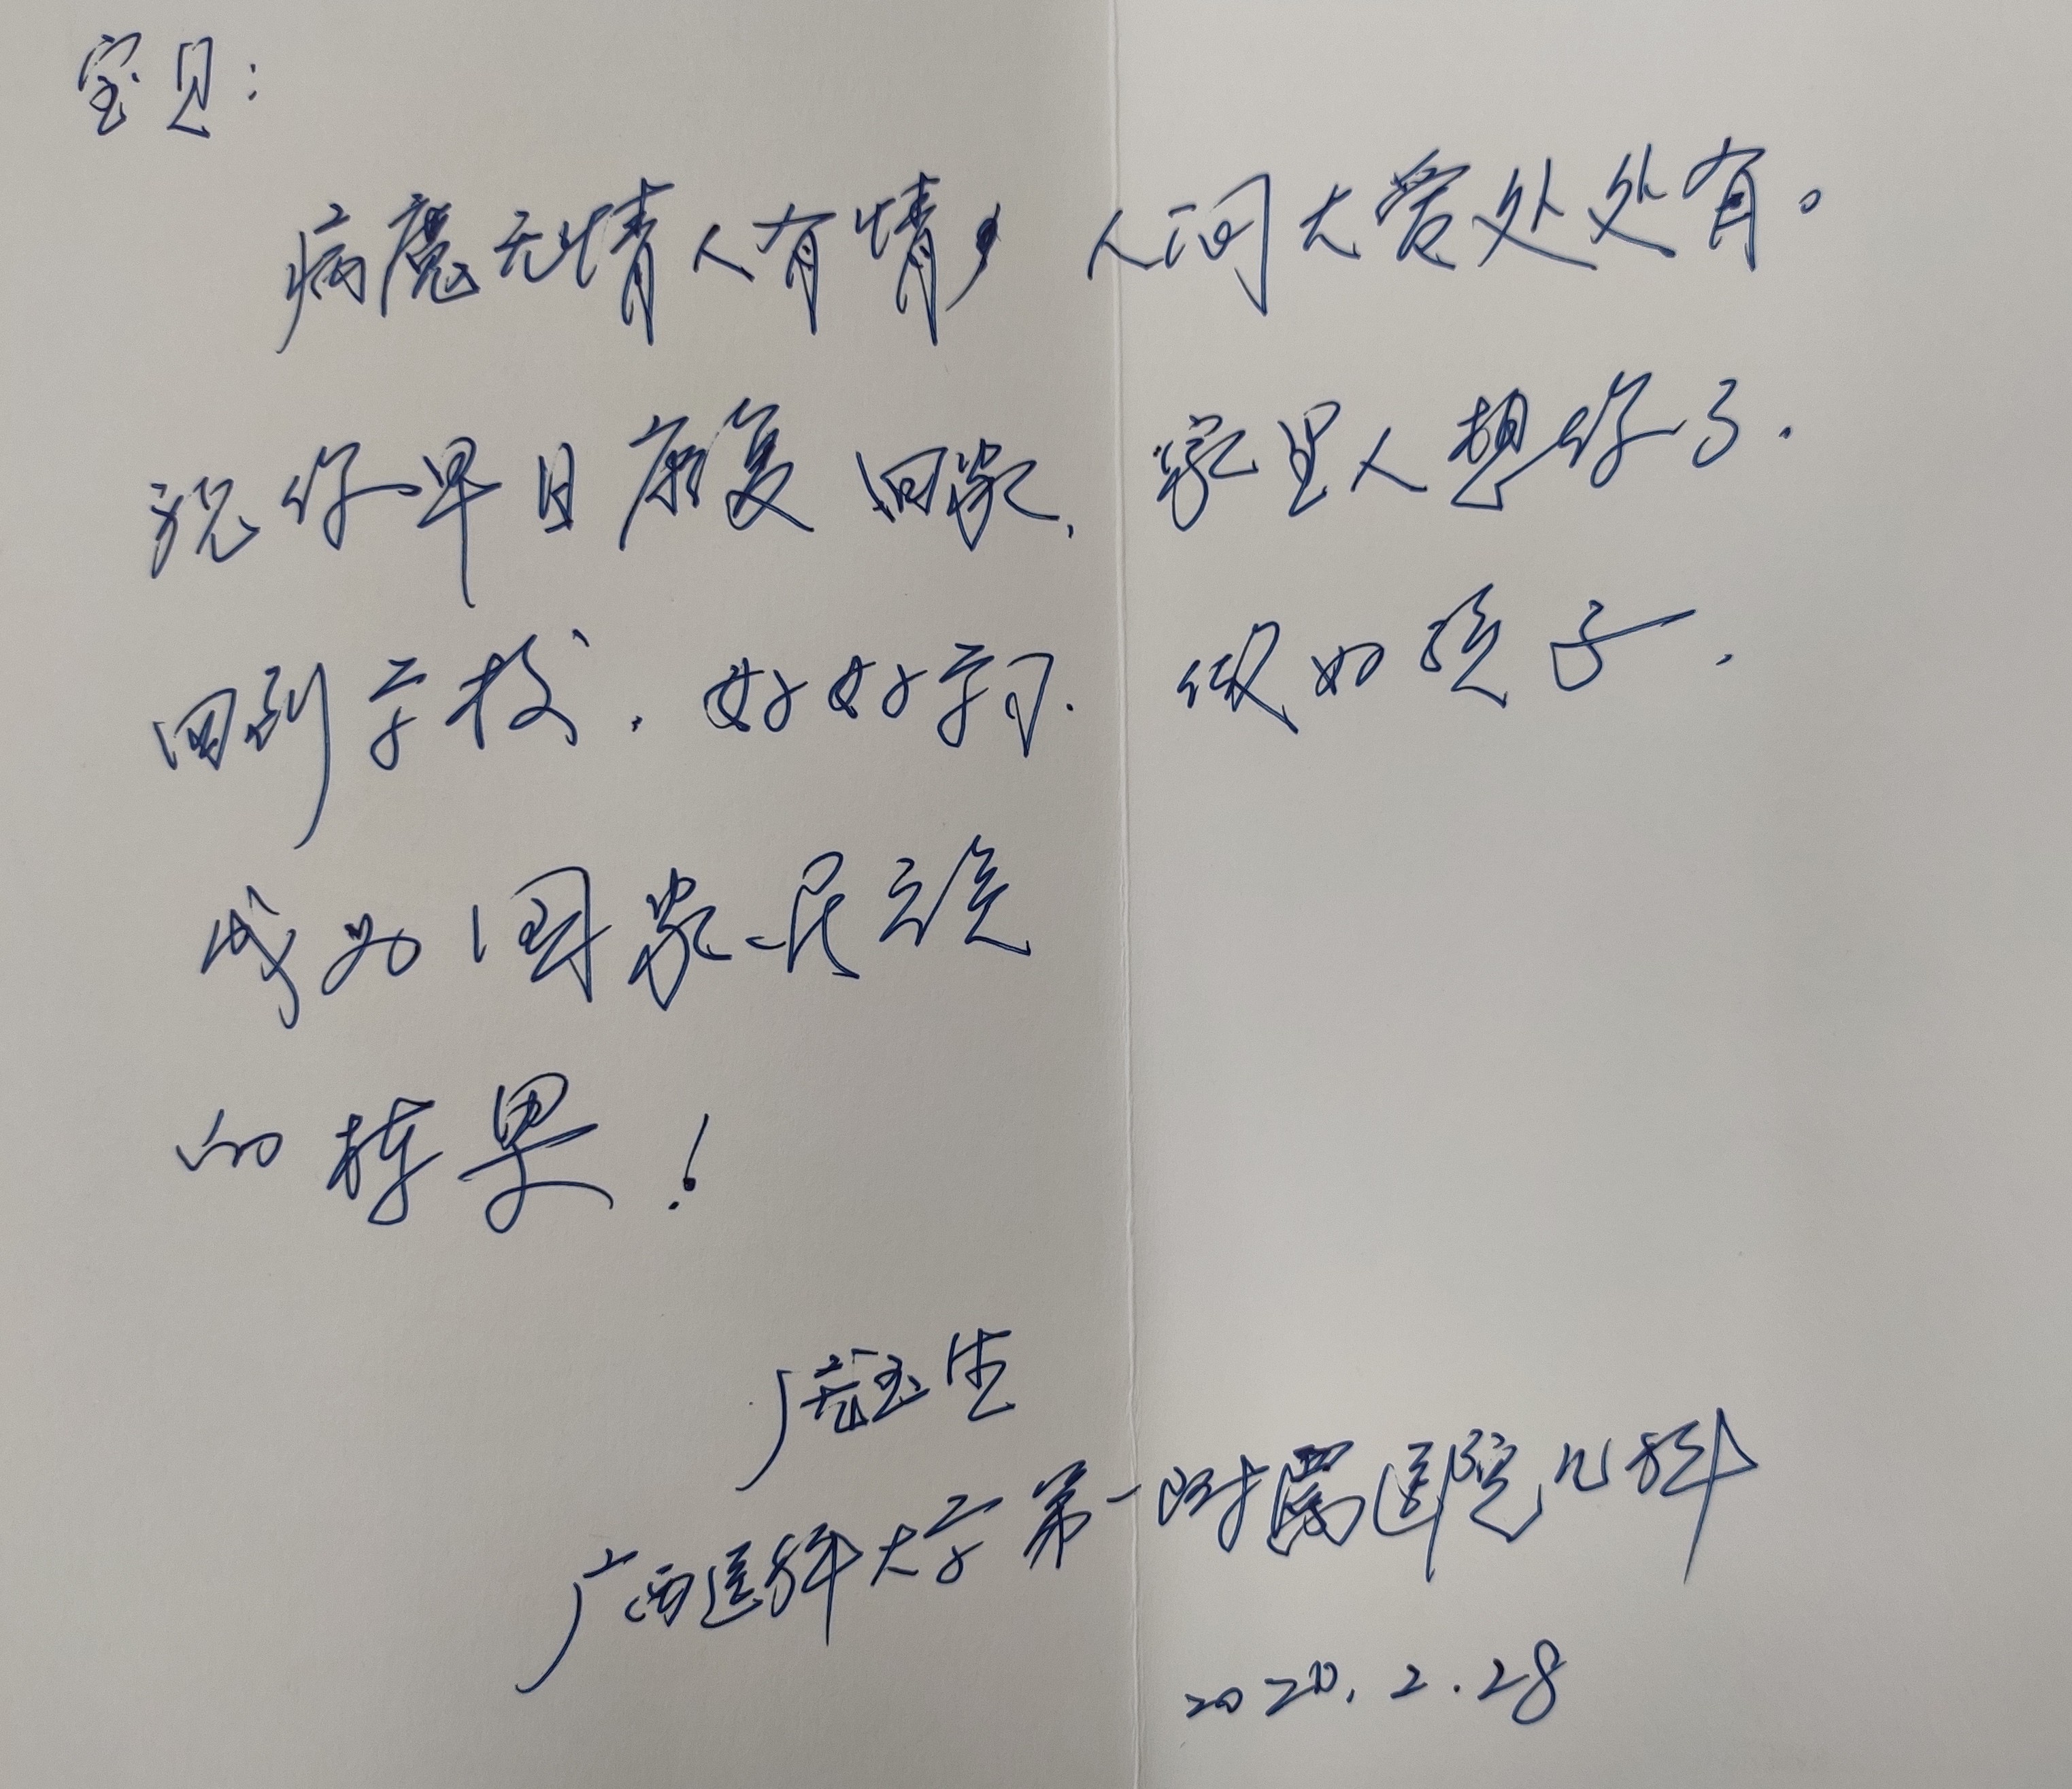 宝贝：
病魔无情人有情，人间大爱处处有。
祝你早日康复回家，家里人想你了．
回到学校．好好学习．做好孩子．
成为国家民族
的栋梁！
庞玉生
广西医科大学第一附属医院儿科
2020.2.28